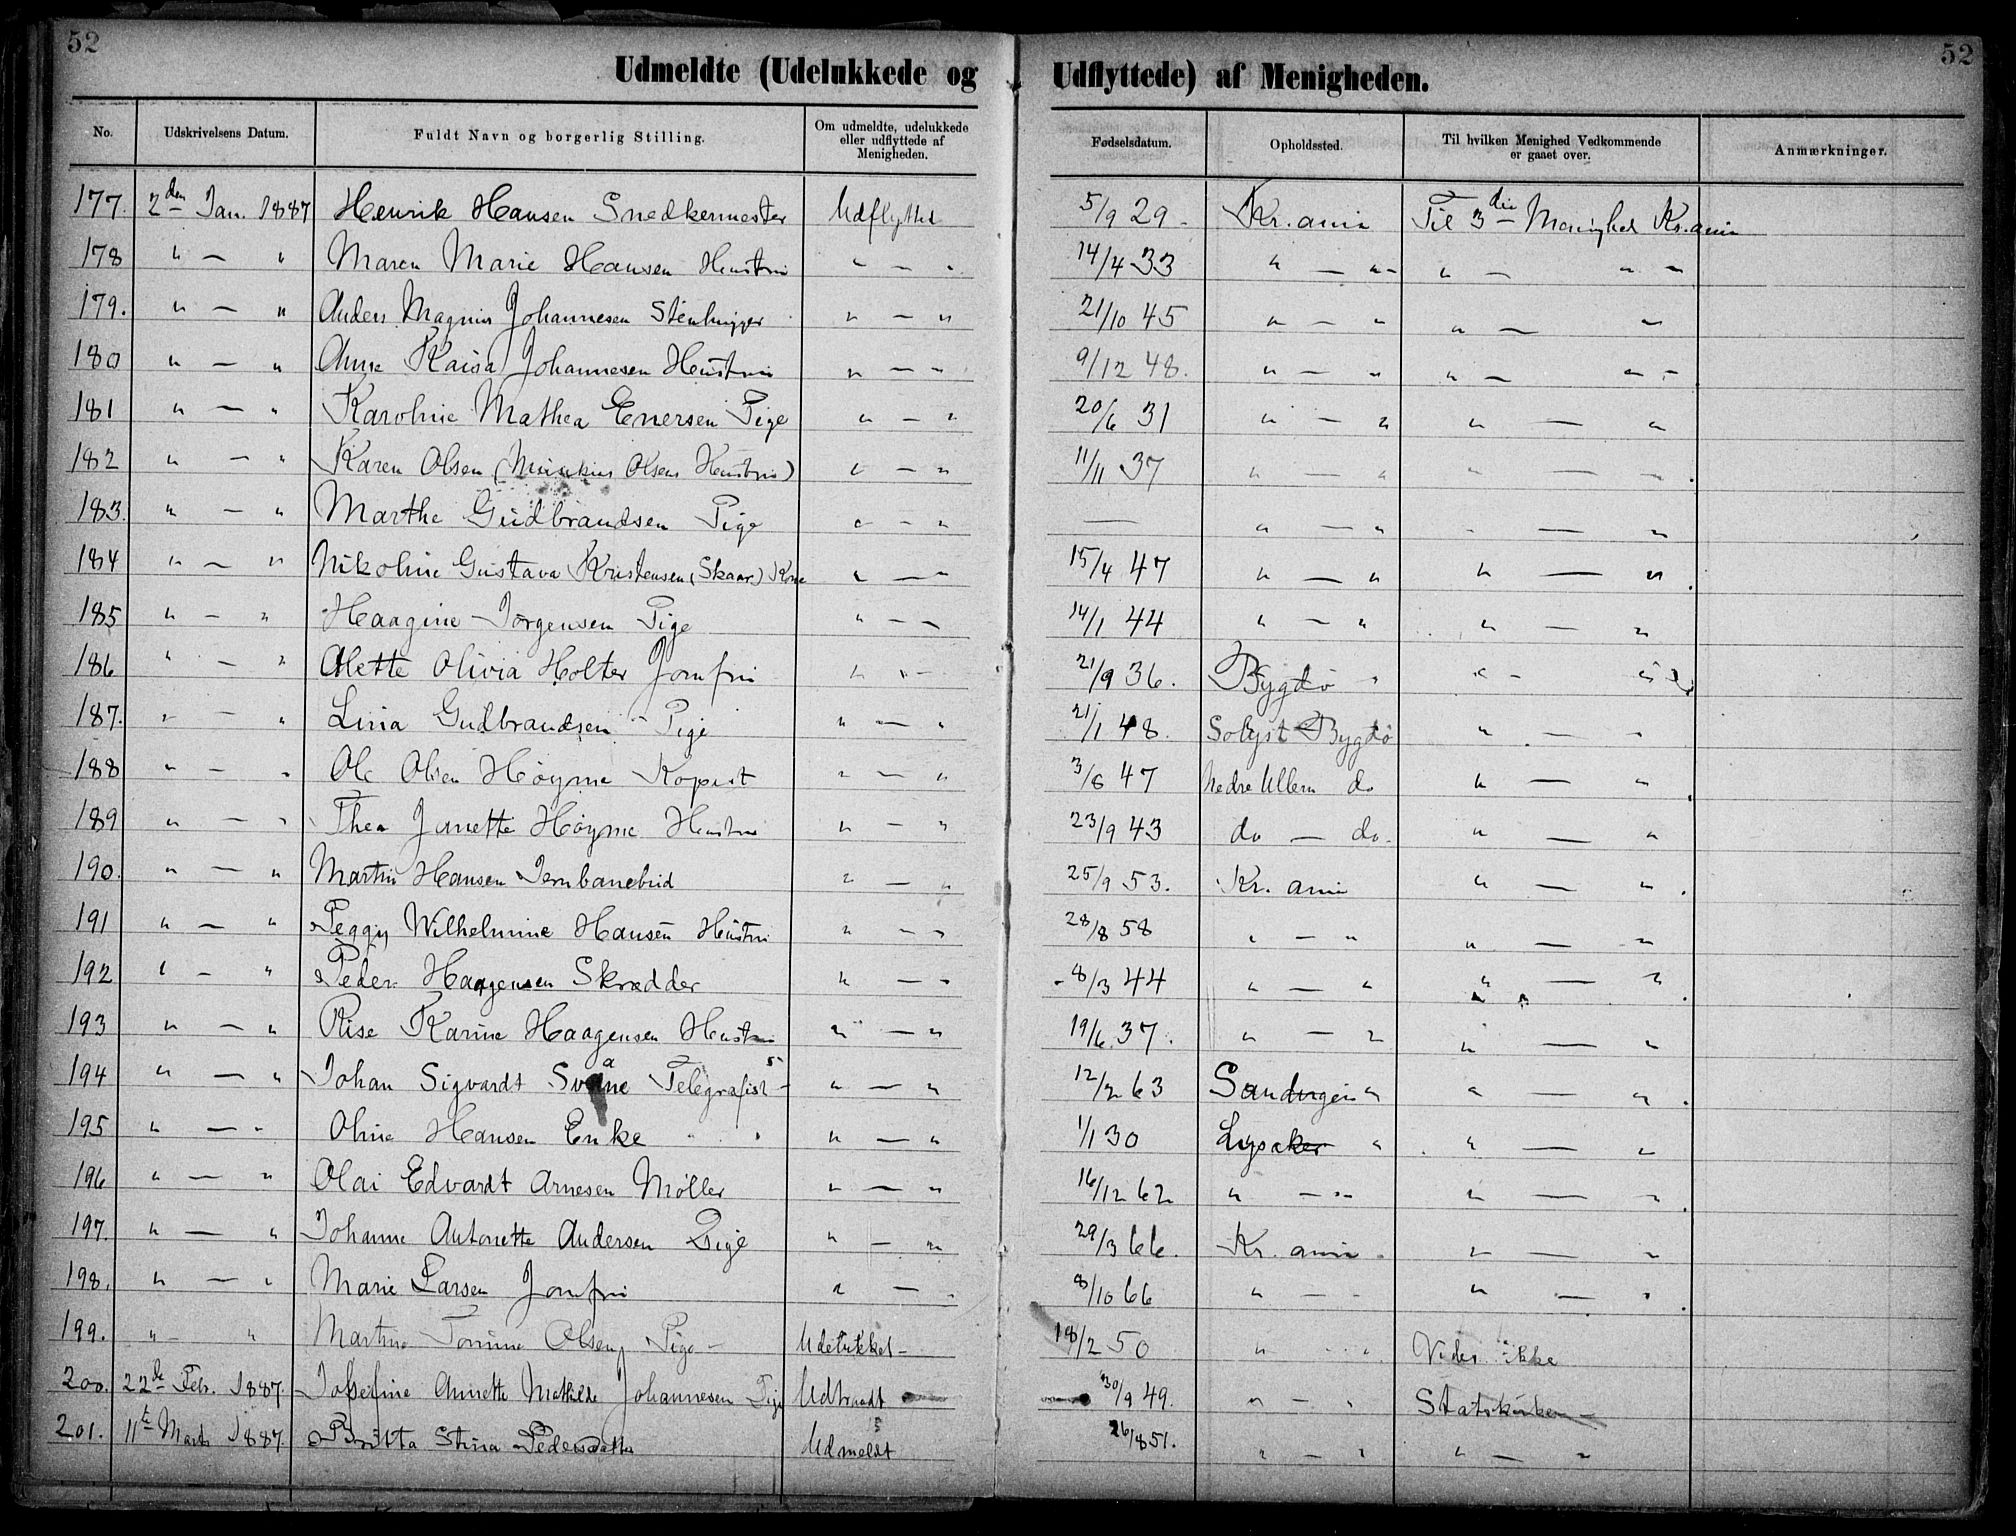 52
52
Udmeldte (Udelukkede og Udflyttede) af Menigheden.
No. Udskrivelsens Datum. Fuldt Navn og borgerlig Stilling. Om udmeldte, udelukkede eller udflyttede af Menigheden. Fødselsdatum. Opholdssted. Til hvilken Menighed Vedkommende er gaaet over. Anmærkninger.
177. 2den Jan. 1887 Henrik Hansen Snedkermester Udflyttet 5/9 29. Kr.ania Til 3die Menighed Kr.ania
178 " — " Maren Marie Hansen Hustru " — " 14/4 33 " — " " — "
179. " — " Anders Magnus Johannesen Stenhugger " — " 21/10 45 " — " " — "
180 " — " Anne Kaisa Johannesen Hustru " — " 9/12 48. " — " " — "
181 " — " Karoline Mathea Enersen Pige " — " 20/6 31 " — " " — "
182 " — " Karen Olsen ( Olsens Hustru) " — " 11/11 37 " — " " — "
183. " — " Marthe Gudbrandsen Pige " — " — " — " " — "
184 " — " Nikoline Gustava Kristensen (Skaar) Kone " — " 15/4 47 " — " " — "
185 " — " Haagine Jörgensen Pige " — " 14/1 44 " — " " — "
186 " — " Alette Olivia Holter Jomfru " — " 21/9 36. Bygdö " " — "
187. " — " Lina Gudbrandsen Pige " — " 21/1 48. Solyst Bygdö " — "
188 " — " Ole Olsen Höyme Kopist " — " 3/8 47 Nedre Ullern do " — "
189 " — " Thea Janette Höyme Hustru " — " 23/9 43 do — do. " — "
190. " — " Martin Hansen Jernbanebud " — " 25/9 53. Kr. ania " — "
191 " — " Peggy Wilhelmine Hansen Hustru " — " 28/8 58 " — " " — "
192 " — " Peder Haagensen Skrædder " — " 8/3 44 " — " " — "
193 " — " Karine Haagensen Hustru " — " 19/6 37. " — " " — "
194 " — " Johan Sigvardt Svane Telegrafist " — " 12/2 63 " " — "
195 " — " Oline Hansen Enke " — " 1/1 30 Lysaker " " — "
196 " — " Olai Edvardt Arnesen Möller " — " 16/12 62 " — " " — "
197. " — " Johanne Antonette Andersen Pige " — " 29/3 66. Kr. ania " — "
198. " — " Marie Larsen Jomfru " — " 8/10 66 " — " " — "
199. " — " Martine Olsen Pige — Udelukket — 18/2 50 " — " Vides ikke
200. 22de Febr. 1887. Josefine Annette Mathilde Johannesen Pige 30/9 49. " — " Statskirken —
201. 11te Marts 1887. Britta Stina Pedersdatter Udmeldt 26/8 51. " — " " — "